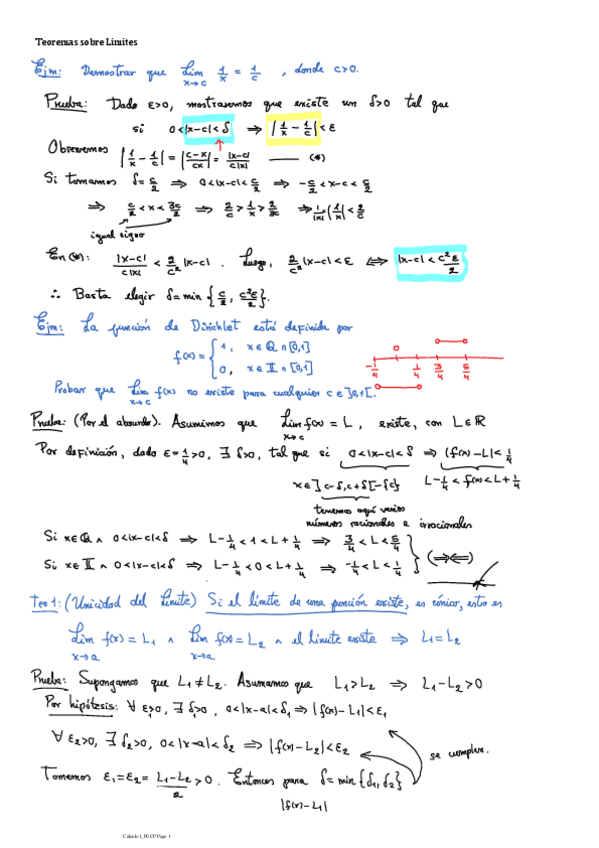 Teoremas sobre Limites
Ejm: Demostrar que Lim x→c 1/x = 1/c , donde c>0.
Prueba: Dado ε>0, mostraremos que existe un δ>0 tal que
si 0<|x-c|<δ ⟹ |1/x - 1/c|<ε
Observemos |1/x - 1/c| = |c-x/cx| = |x-c|/c|x| —— (*)
Si tomamos δ=c/2 ⟹ 0<|x-c|<c/2 ⟹ -c/2<x-c<c/2
⟹ c/2<x<3c/2 ⟹ 2/c>1/x>2/3c ⟹ 1/|x|=|1/x|<2/c
igual signo
En (*): |x-c|/c|x| < 2/c² |x-c| . Luego, 2/c² |x-c|<ε ⟺ |x-c|<c²ε/2
∴ Basta elegir δ=min {c/2, c²ε/2}.
Ejm: La función de Dirichlet está definida por
f(x)={ 1, x∈ℚ∩[0,1]
0, x∈𝕀∩[0,1]
-1/4 1/4 3/4 5/4
Probar que Lim x→c f(x) no existe para cualquier c∈]0,1[.
Prueba: (Por el absurdo). Asumimos que Lim x→c f(x)=L, existe, con L∈ℝ
Por definición, dado ε=1/4>0, ∃ δ>0, tal que si 0<|x-c|<δ ⟹ |f(x)-L|<1/4
x∈]c-δ,c+δ[-{c} L-1/4<f(x)<L+1/4
tenemos aquí varios
números racionales e irracionales
Si x∈ℚ ∧ 0<|x-c|<δ ⟹ L-1/4<1<L+1/4 ⟹ 3/4<L<5/4
Si x∈𝕀 ∧ 0<|x-c|<δ ⟹ L-1/4<0<L+1/4 ⟹ -1/4<L<1/4
(⟹⟸)
Teo 1: (Unicidad del Límite) Si el límite de una función existe, es único, esto es
Lim x→a f(x)=L₁ ∧ Lim x→a f(x)=L₂ ∧ el límite existe ⟹ L₁=L₂
Prueba: Supongamos que L₁≠L₂. Asumamos que L₁>L₂ ⟹ L₁-L₂>0
Por hipótesis: ∀ ε₁>0, ∃ δ₁>0, 0<|x-a|<δ₁ ⟹ |f(x)-L₁|<ε₁
∀ ε₂>0, ∃ δ₂>0, 0<|x-a|<δ₂ ⟹ |f(x)-L₂|<ε₂
se cumplen.
Tomemos ε₁=ε₂= L₁-L₂/2 >0. Entonces para δ=min{δ₁,δ₂}
|f(x)-L₁|
Calculo I_PUCP Page 1